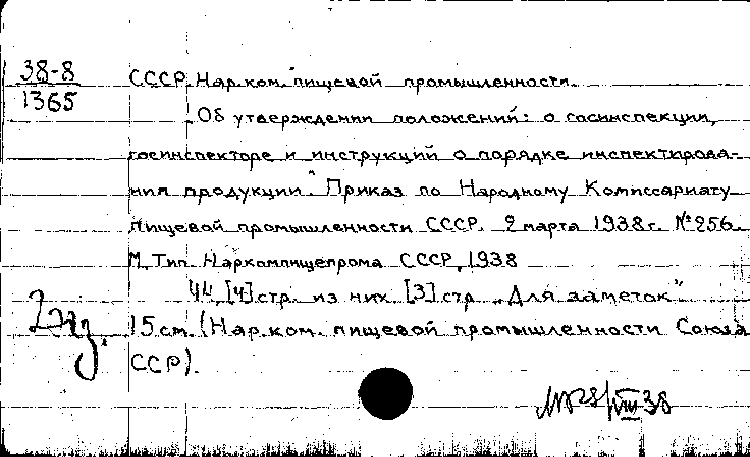 38-8
1365
СССР. Нар.ком. пищевой промышленности.
Об утверждении положений: о госинспекции,
госинспекторе и инструкций о порядке инспектирова-
ния продукции." Приказ по Народному Комиссариату
пищевой промышленности СССР. 2 марта 1938 г. №256.
М. Тип. Наркомпищепрома СССР, 1938
44, [4] стр. из них [3] стр „Для заметок"
2 экз.
15 см. (Нар.ком. пищевой промышленности Союза
ССР).
VIII 38